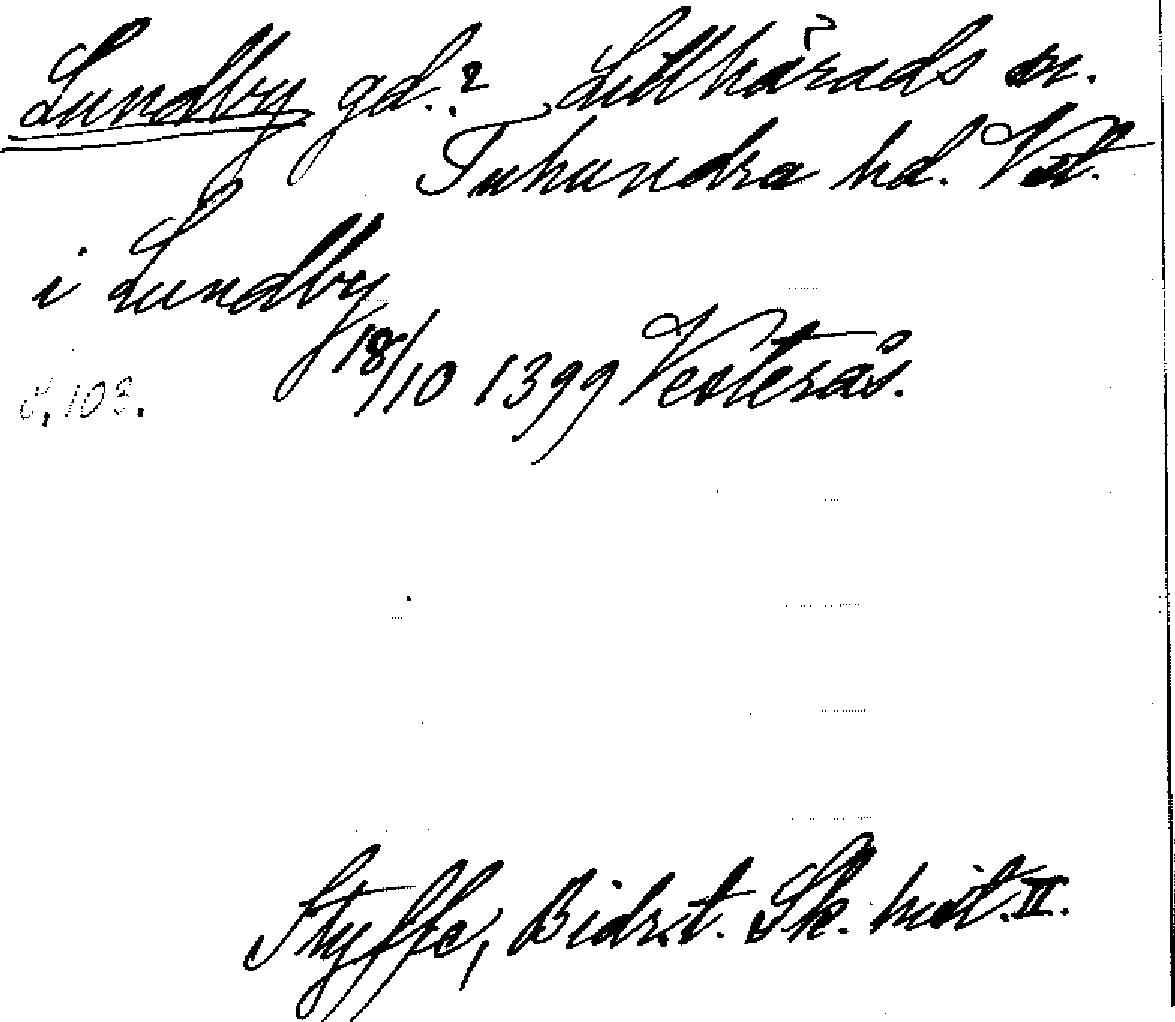 Lundby gd.? Lillhärads sn.
Tuhundra hd. Vstl.
i Lundby
18/10 1399 Vesterås.
s. 103.
Styffe, Bidr. t. Sk. hist. II.